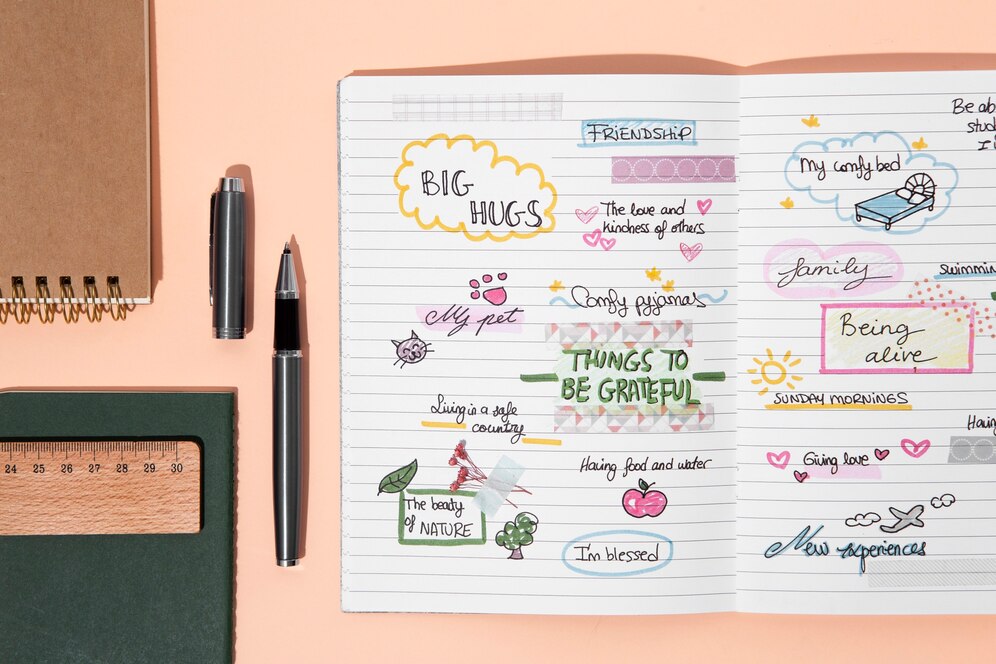 FRIENDSHIP
BIG
HUGS
The love and
kindness of others
My pet
Comfy pyjamas
THINGS TO
BE GRATEFUL
Living is a safe
country
Having food and water
The beauty
of NATURE
I'm blessed
Be ab
stud
I
My comfy bed
family
swimmin
Being
alive
SUNDAY MORNINGS
Havin
Giving love
New experiences
24 25 26 27 28 29 30